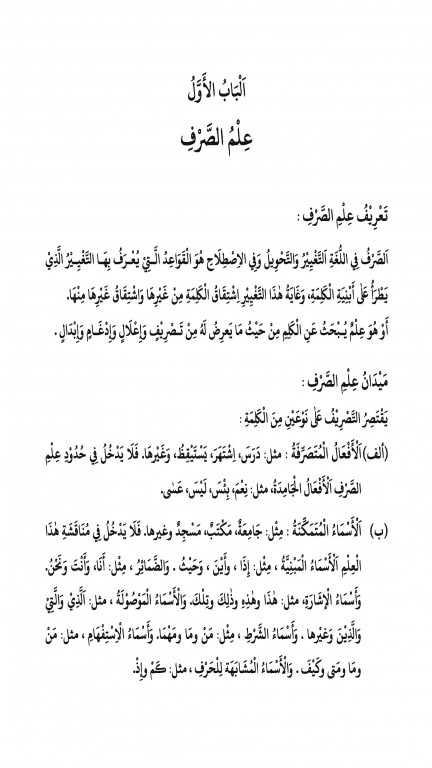 اَلْبَابُ الأَوَّلُ
عِلْمُ الصَّرْفِ
تَعْرِيْفُ عِلْمِ الصَّرْفِ :
اَلصَّرْفُ فِي اللُّغَةِ اَلتَّغْيِيْرُ وَالتَّحْوِيلُ وَفِي الاِصْطِلَاحِ هُوَ الْقَوَاعِدُ الَّتِيْ يُعْرَفُ بِهَا التَّغْيِيْرُ الَّذِيْ
يَطْرَأُ عَلَى أَبْنِيَةِ الْكَلِمَةِ، وَغَايَةُ هٰذَا التَّغْيِيْرِ اِشْتِقَاقُ الْكَلِمَةِ مِنْ غَيْرِهَا وَاشْتِقَاقُ غَيْرِهَا مِنْهَا.
أَوْ هُوَ عِلْمٌ يُبْحَثُ عَنِ الْكَلِمِ مِنْ حَيْثُ مَا يَعرِضُ لَهُ مِنْ تَصْرِيْفٍ وَإِعْلَالٍ وَإِدْغَامٍ وَإِبْدَالٍ .
مَيْدَانُ عِلْمِ الصَّرْفِ :
يَقْتَصِرُ التَّصْرِيْفُ عَلَى نَوْعَيْنِ مِنَ الْكَلِمَةِ :
(ألف) اَلْأَفْعَالُ الْمُتَصَرِّفَةُ : مثل: دَرَسَ، اِشْتَهَرَ، يَسْتَيْقِظُ، وَغَيْرُهَا. فَلَا يَدْخُلُ فِي حُدُوْدِ عِلْمِ
الصَّرْفِ اَلْأَفْعَالُ الْجَامِدَةُ، مثل: نِعْمَ، بِئْسَ، لَيْسَ، عَسٰى.
(ب) اَلْأَسْمَاءُ الْمُتَمَكِّنَةُ : مِثْل: جَامِعَةٌ، مَكْتَبٌ، مَسْجِدٌ وغيرها. فَلَا يَدْخُلُ فِي مُنَاقَشَةِ هٰذَا
الْعِلْمِ اَلْأَسْمَاءُ الْمَبْنِيَّةُ ، مِثْل: إِذَا ، وَأَيْنَ ، وَحَيْثُ . وَالضَّمَائِرُ ، مِثْل: أَنَا، وَأَنْتَ وَنَحْنُ.
وَأَسْمَاءُ الْإِشَارَةِ، مثل: هٰذَا وهٰذِهِ وذٰلِكَ وتِلْكَ. وَالْأَسْمَاءُ الْمَوْصُوْلَةُ ، مثل: اَلَّذِيْ وَالَّتِيْ
وَالَّذِيْنَ وَغَيْرها . وَأَسْمَاءُ الشَّرْطِ ، مِثْل: مَنْ وما ومَهْمَا. وَأَسْمَاءُ الْاِسْتِفْهَامِ ، مثل: مَنْ
وما ومَتى وكَيْفَ . وَالْأَسْمَاءُ الْمُشَابَهَة لِلْحَرْفِ ، مثل: كَمْ وإِذْ.